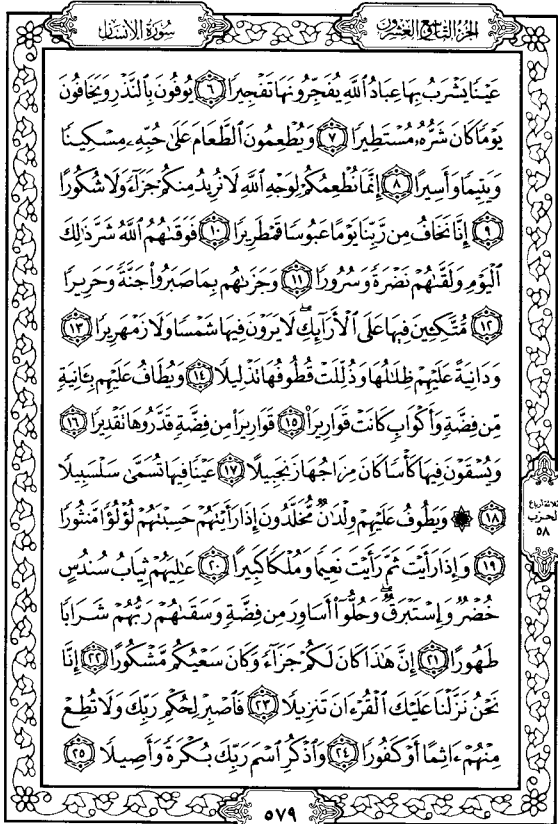 سُورَةُ الإِنسَانِ
الجزء التاسع والعشرون
عَيْنًا يَشْرَبُ بِهَا عِبَادُ ٱللَّهِ يُفَجِّرُونَهَا تَفْجِيرًا ٦ يُوفُونَ بِٱلنَّذْرِ وَيَخَافُونَ
يَوْمًا كَانَ شَرُّهُۥ مُسْتَطِيرًا ٧ وَيُطْعِمُونَ ٱلطَّعَامَ عَلَىٰ حُبِّهِۦ مِسْكِينًا
وَيَتِيمًا وَأَسِيرًا ٨ إِنَّمَا نُطْعِمُكُمْ لِوَجْهِ ٱللَّهِ لَا نُرِيدُ مِنكُمْ جَزَآءً وَلَا شُكُورًا
٩ إِنَّا نَخَافُ مِن رَّبِّنَا يَوْمًا عَبُوسًا قَمْطَرِيرًا ١٠ فَوَقَىٰهُمُ ٱللَّهُ شَرَّ ذَٰلِكَ
ٱلْيَوْمِ وَلَقَّىٰهُمْ نَضْرَةً وَسُرُورًا ١١ وَجَزَىٰهُم بِمَا صَبَرُوا۟ جَنَّةً وَحَرِيرًا
١٢ مُّتَّكِـِٔينَ فِيهَا عَلَى ٱلْأَرَآئِكِ ۖ لَا يَرَوْنَ فِيهَا شَمْسًا وَلَا زَمْهَرِيرًا ١٣
وَدَانِيَةً عَلَيْهِمْ ظِلَـٰلُهَا وَذُلِّلَتْ قُطُوفُهَا تَذْلِيلًا ١٤ وَيُطَافُ عَلَيْهِم بِـَٔانِيَةٍ
مِّن فِضَّةٍ وَأَكْوَابٍ كَانَتْ قَوَارِيرَا۠ ١٥ قَوَارِيرَا۟ مِن فِضَّةٍ قَدَّرُوهَا تَقْدِيرًا ١٦
وَيُسْقَوْنَ فِيهَا كَأْسًا كَانَ مِزَاجُهَا زَنجَبِيلًا ١٧ عَيْنًا فِيهَا تُسَمَّىٰ سَلْسَبِيلًا
١٨ ۞ وَيَطُوفُ عَلَيْهِمْ وِلْدَٰنٌ مُّخَلَّدُونَ إِذَا رَأَيْتَهُمْ حَسِبْتَهُمْ لُؤْلُؤًا مَّنثُورًا
١٩ وَإِذَا رَأَيْتَ ثَمَّ رَأَيْتَ نَعِيمًا وَمُلْكًا كَبِيرًا ٢٠ عَـٰلِيَهُمْ ثِيَابُ سُندُسٍ
خُضْرٌ وَإِسْتَبْرَقٌ ۖ وَحُلُّوٓا۟ أَسَاوِرَ مِن فِضَّةٍ وَسَقَىٰهُمْ رَبُّهُمْ شَرَابًا
طَهُورًا ٢١ إِنَّ هَـٰذَا كَانَ لَكُمْ جَزَآءً وَكَانَ سَعْيُكُم مَّشْكُورًا ٢٢ إِنَّا
نَحْنُ نَزَّلْنَا عَلَيْكَ ٱلْقُرْءَانَ تَنزِيلًا ٢٣ فَٱصْبِرْ لِحُكْمِ رَبِّكَ وَلَا تُطِعْ
مِنْهُمْ ءَاثِمًا أَوْ كَفُورًا ٢٤ وَٱذْكُرِ ٱسْمَ رَبِّكَ بُكْرَةً وَأَصِيلًا ٢٥
ثلاثة أرباع
الحزب
٥٨
٥٧٩